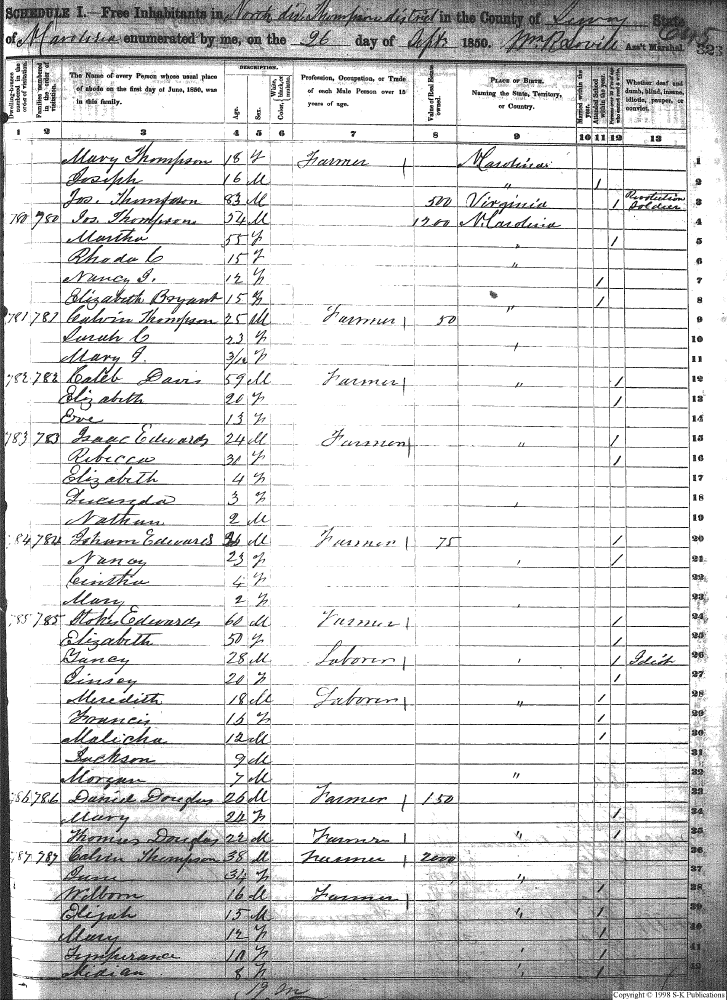 SCHEDULE I.—Free Inhabitants in North div Thompson district in the County of State
of N Carolina enumerated by me, on the 26 day of Sept 1850. Wm Ass't Marshal. 323
Dwelling-houses numbered in the order of visitation.
Families numbered in the order of visitation.
The Name of every Person whose usual place of abode on the first day of June, 1850, was in this family.
DESCRIPTION.
Age.
Sex.
Color, White, black, or mulatto.
Profession, Occupation, or Trade of each Male Person over 15 years of age.
Value of Real Estate owned.
PLACE OF BIRTH.
Naming the State, Territory, or Country.
Married within the year.
Attended School within the year.
Whether deaf and dumb, blind, insane, idiotic, pauper, or convict.
1 2 3 4 5 6 7 8 9 10 11 12 13
Mary Thompson 18 F Farmer N Carolina 1
Joseph 16 M " 1 2
Jos. Thompson 83 M 500 Virginia 1 Revolution Soldier 3
780 780 Jos Thompson 54 M 1200 N. Carolina 4
Martha 55 F " 1 5
Rhoda C 15 F " 6
Nancy J. 12 F 1 7
Elizabeth Bryant 15 F " 1 8
781 781 Calvin Thompson 25 M Farmer 50 9
Sarah C 23 F 10
Mary J. 3/12 F 11
782 782 Caleb Davis 59 M Farmer " 1 12
Elizabeth 20 F 1 13
Eve 13 F 14
783 783 Isaac Edwards 24 M Farmer " 1 15
Rebecca 30 F 1 16
Elizabeth 4 F 17
Lucinda 3 F 18
Nathan 2 M 19
784 784 Edwards M Farmer 75 1 20
Nancy 23 F 1 21
Cintha 4 F 22
Mary 2 F 23
785 785 Stokes Edwards 60 M Farmer 1 24
Elizabeth 50 F 1 25
Yancy 28 M Laborer 1 Idiot 26
Jinsey 20 F 1 27
Meredith 18 M Laborer " 1 28
Francis F 1 29
Malicha 12 M 1 30
Jackson 9 M 31
Morgan 7 M " 32
786 786 Daniel Douglas 26 M Farmer 150 33
Mary 22 F 1 34
Thomas Douglas 22 M Farmer " 1 35
787 787 Calvin Thompson 38 M Farmer 2000 36
Jane 34 F " 37
Wilborn 16 M Farmer 1 38
Elijah 15 M " 1 39
Mary 12 F 1 40
Temperance F " 1 41
8 F " 1 42
19 m
Copyright © 1998 S-K Publications